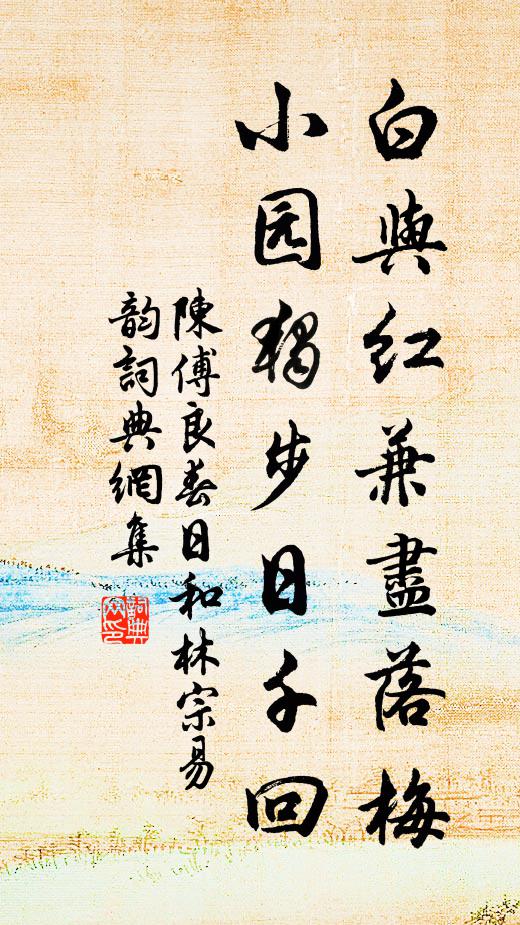 白與红兼盡落梅
小园獨步日千回
陳傅良春日和林宗易
韵詞典網集
詞典网印